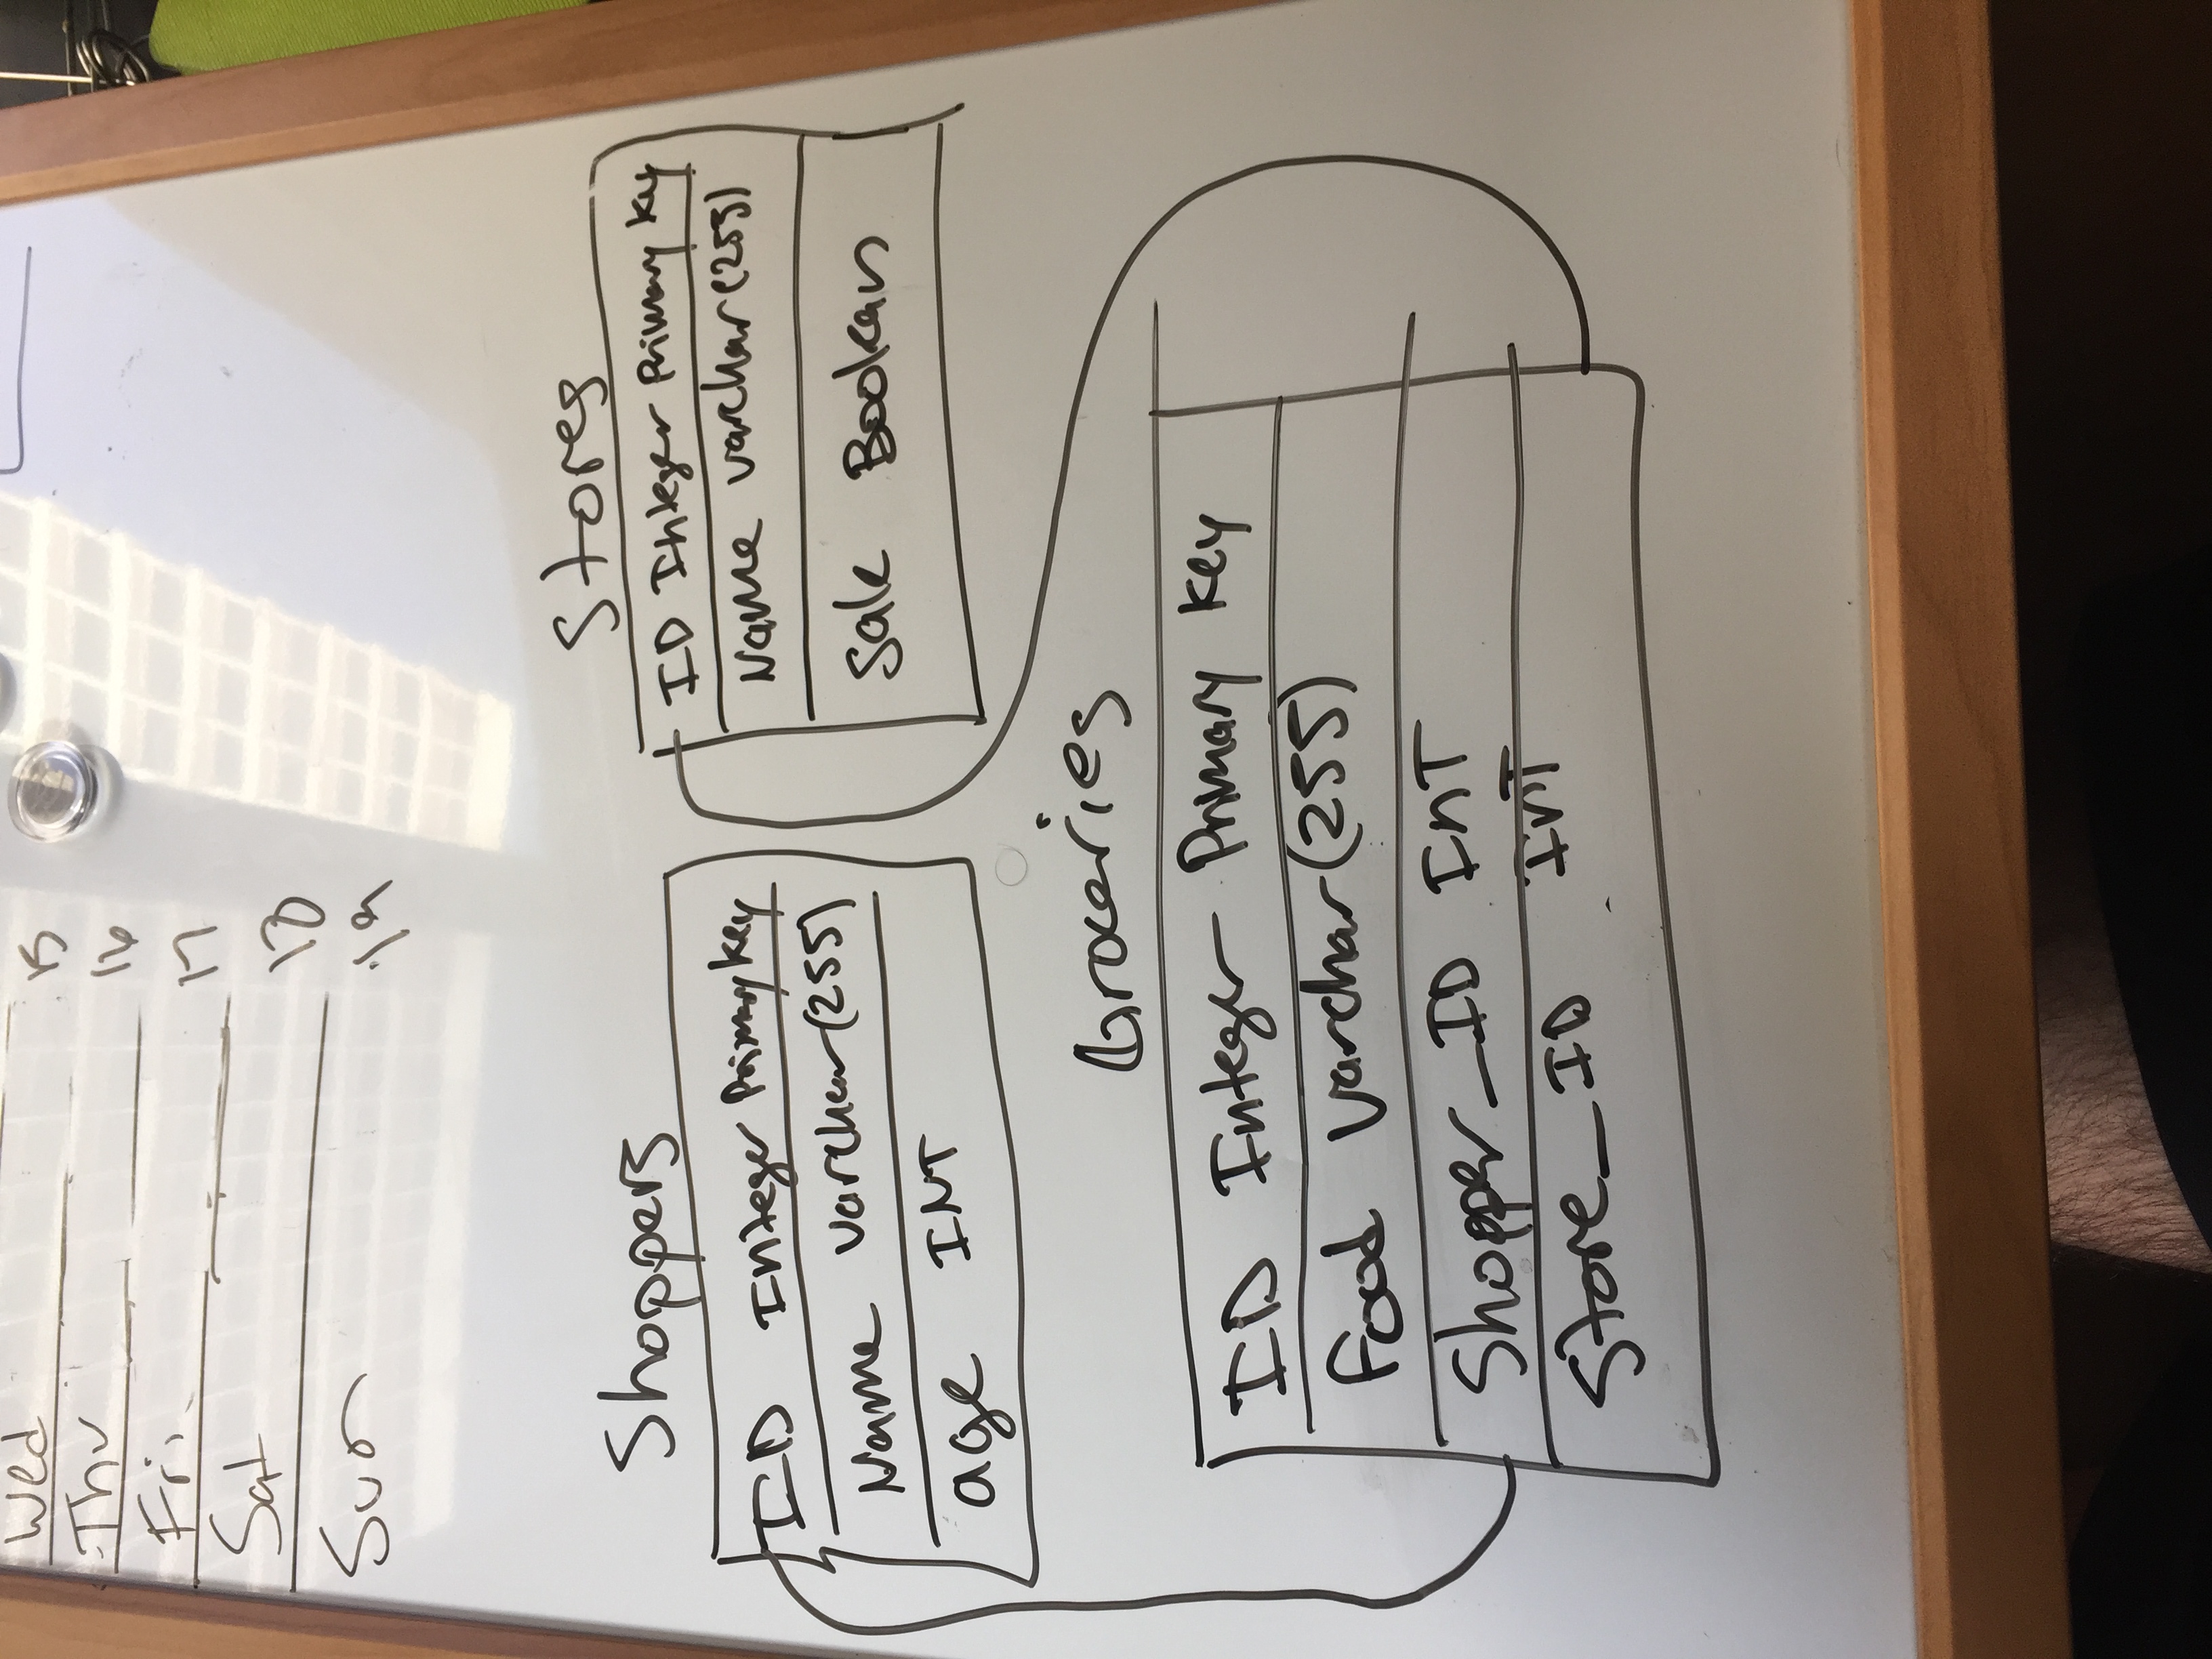 Wed 15
Thu 16
Fri 17
Sat 18
Sun 19
Shoppers
ID Integer Primary Key
Name Varchar(255)
age INT
Stores
ID Integer Primary Key
Name Varchar(255)
Sale Boolean
Groceries
ID Integer Primary Key
Food Varchar(255)
Shopper_ID InT
Store_ID InT